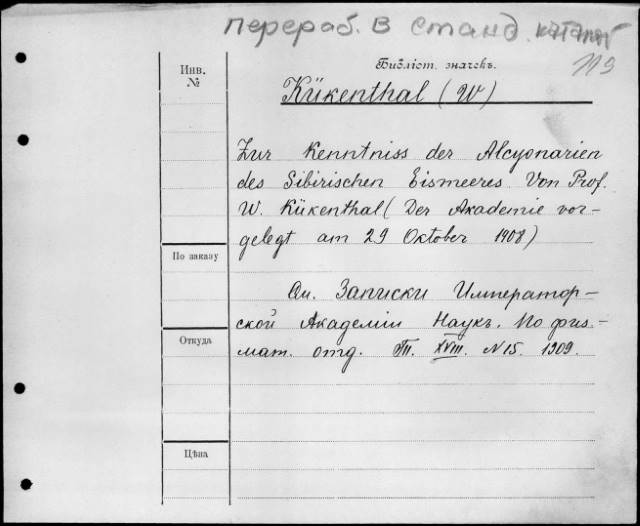 перераб. в станд. каталог
119
Инв.
№
Библіот. значекъ.
Kükenthal (W)
Zur Kenntniss der Alcyonarien
des Sibirischen Eismeeres Von Prof.
W. Kükenthal (Der Akademie vor-
gelegt am 29 Oktober 1908)
По заказу
См. Записки Император-
ской Академіи Наукъ. По физ.-
мат. отд. Т. XVIII. N 15. 1909.
Откуда
Цѣна